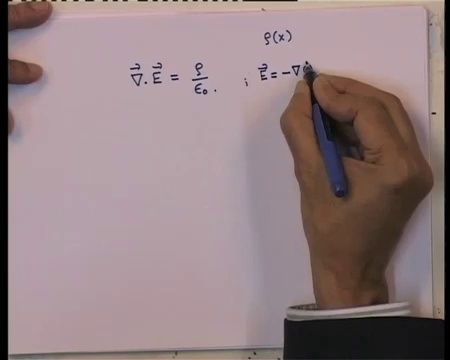 ρ(x)
∇⃗. E⃗ = ρ/ε₀. ; E⃗ = −∇